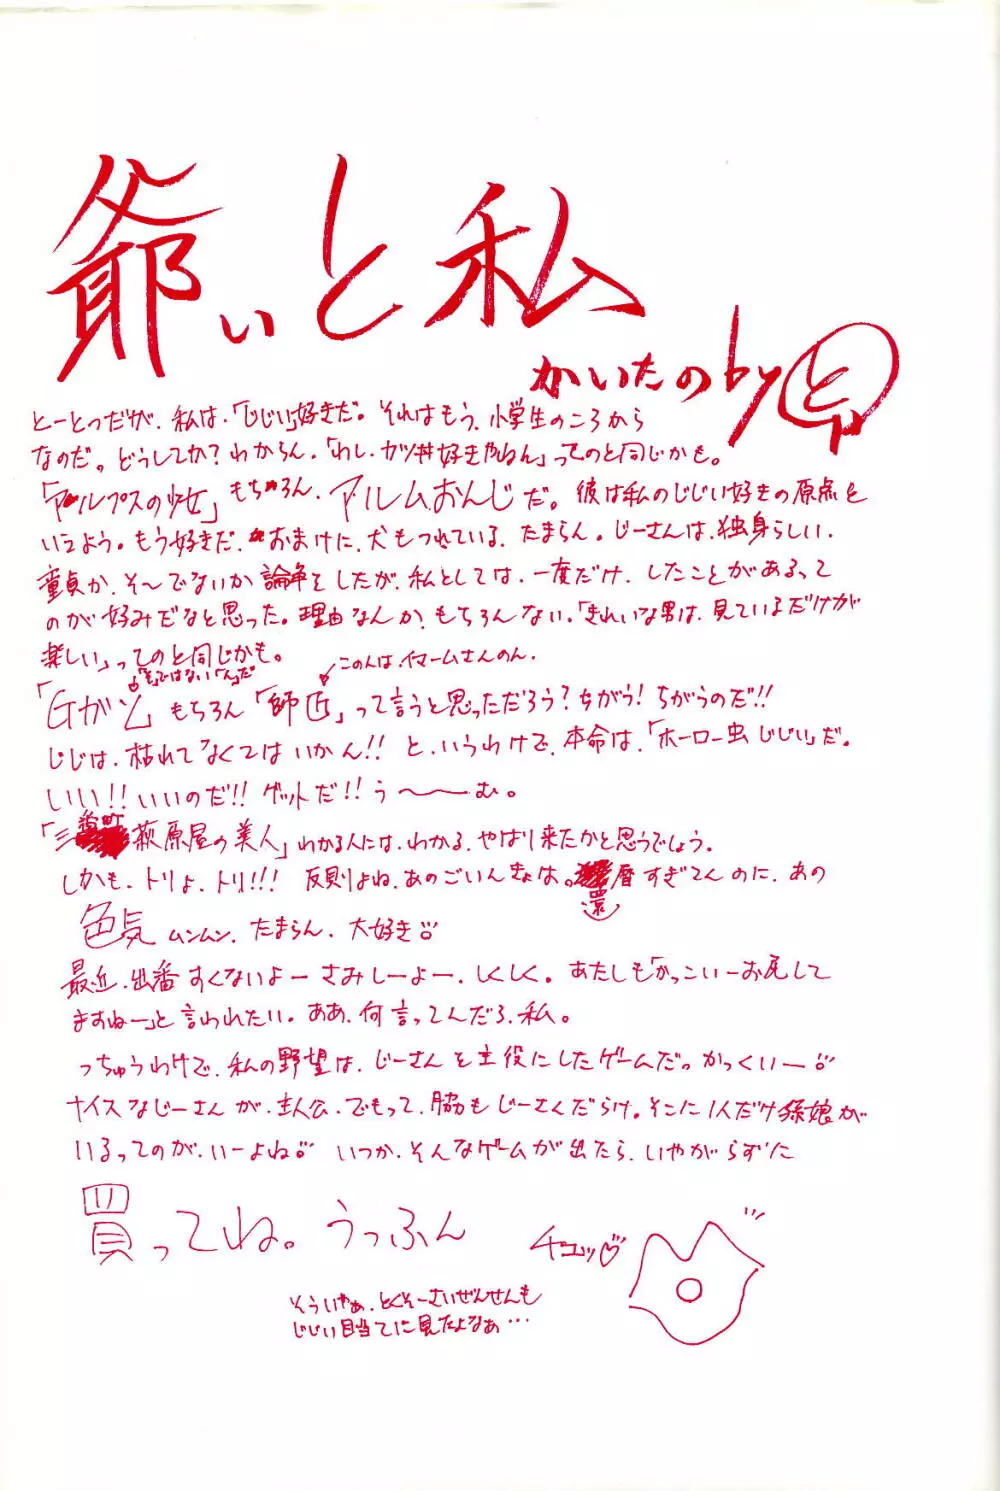 爺ぃと私
かいたのby と
とーとつだが、私は、「じじい」好きだ。それはもう、小学生のころから
なのだ。どうしてか?わからん。「わし、カツ丼好きやねん」ってのと同じかも。
「アルプスの少女」もちろん、アルムおんじだ。彼は私のじじい好きの原点と
いえよう。もう好きだ、おまけに、犬もつれている、たまらん。じーさんは、独身らしい、
童貞か、そ〜でないか論争をしたが、私としては、一度だけ、したことがあるって
のが好みだなと思った。理由なんか、もちろんない。「きれいな男は、見ているだけが
楽しい」ってのと同じかも。
「そ」ではない「ん」だ
このんは、イマームさんのん、
「Gガン」もちろん「師匠」って言うと思っただろう?ちがう!ちがうのだ!!
じじは、枯れてなくてはいかん!!と、いうわけで、本命は、「ホーロー虫じじい」だ。
しいい!!いいのだ!!ゲットだ!!う〜〜む。
「三番町萩原屋の美人」わかる人には、わかる、やはり来たかと思うでしょう。
しかも、トリよ、トリ!!!反則よね、あのごいんきょは。還暦すぎてんのに、あの
色気ムンムン、たまらん、大好き
最近、出番すくないよーさみしーよー、しくしく。あたしも「かっこいーお尻して
ますねー」と言われたい。ああ、何言ってんだろ、私。
っちゅうわけで、私の野望は、じーさんを主役にしたゲームだ。かっくいー
ナイスなじーさんが、主人公、でもって、脇もじーさんだらけ。そこに1人だけ孫娘が
いるってのが、いーよね いつか、そんなゲームが出たら、いやがらずに
買ってね。うっふん
チュッ♡
そういやぁ、とくそーさいぜんせんも
じじい目当てに見たよなぁ…